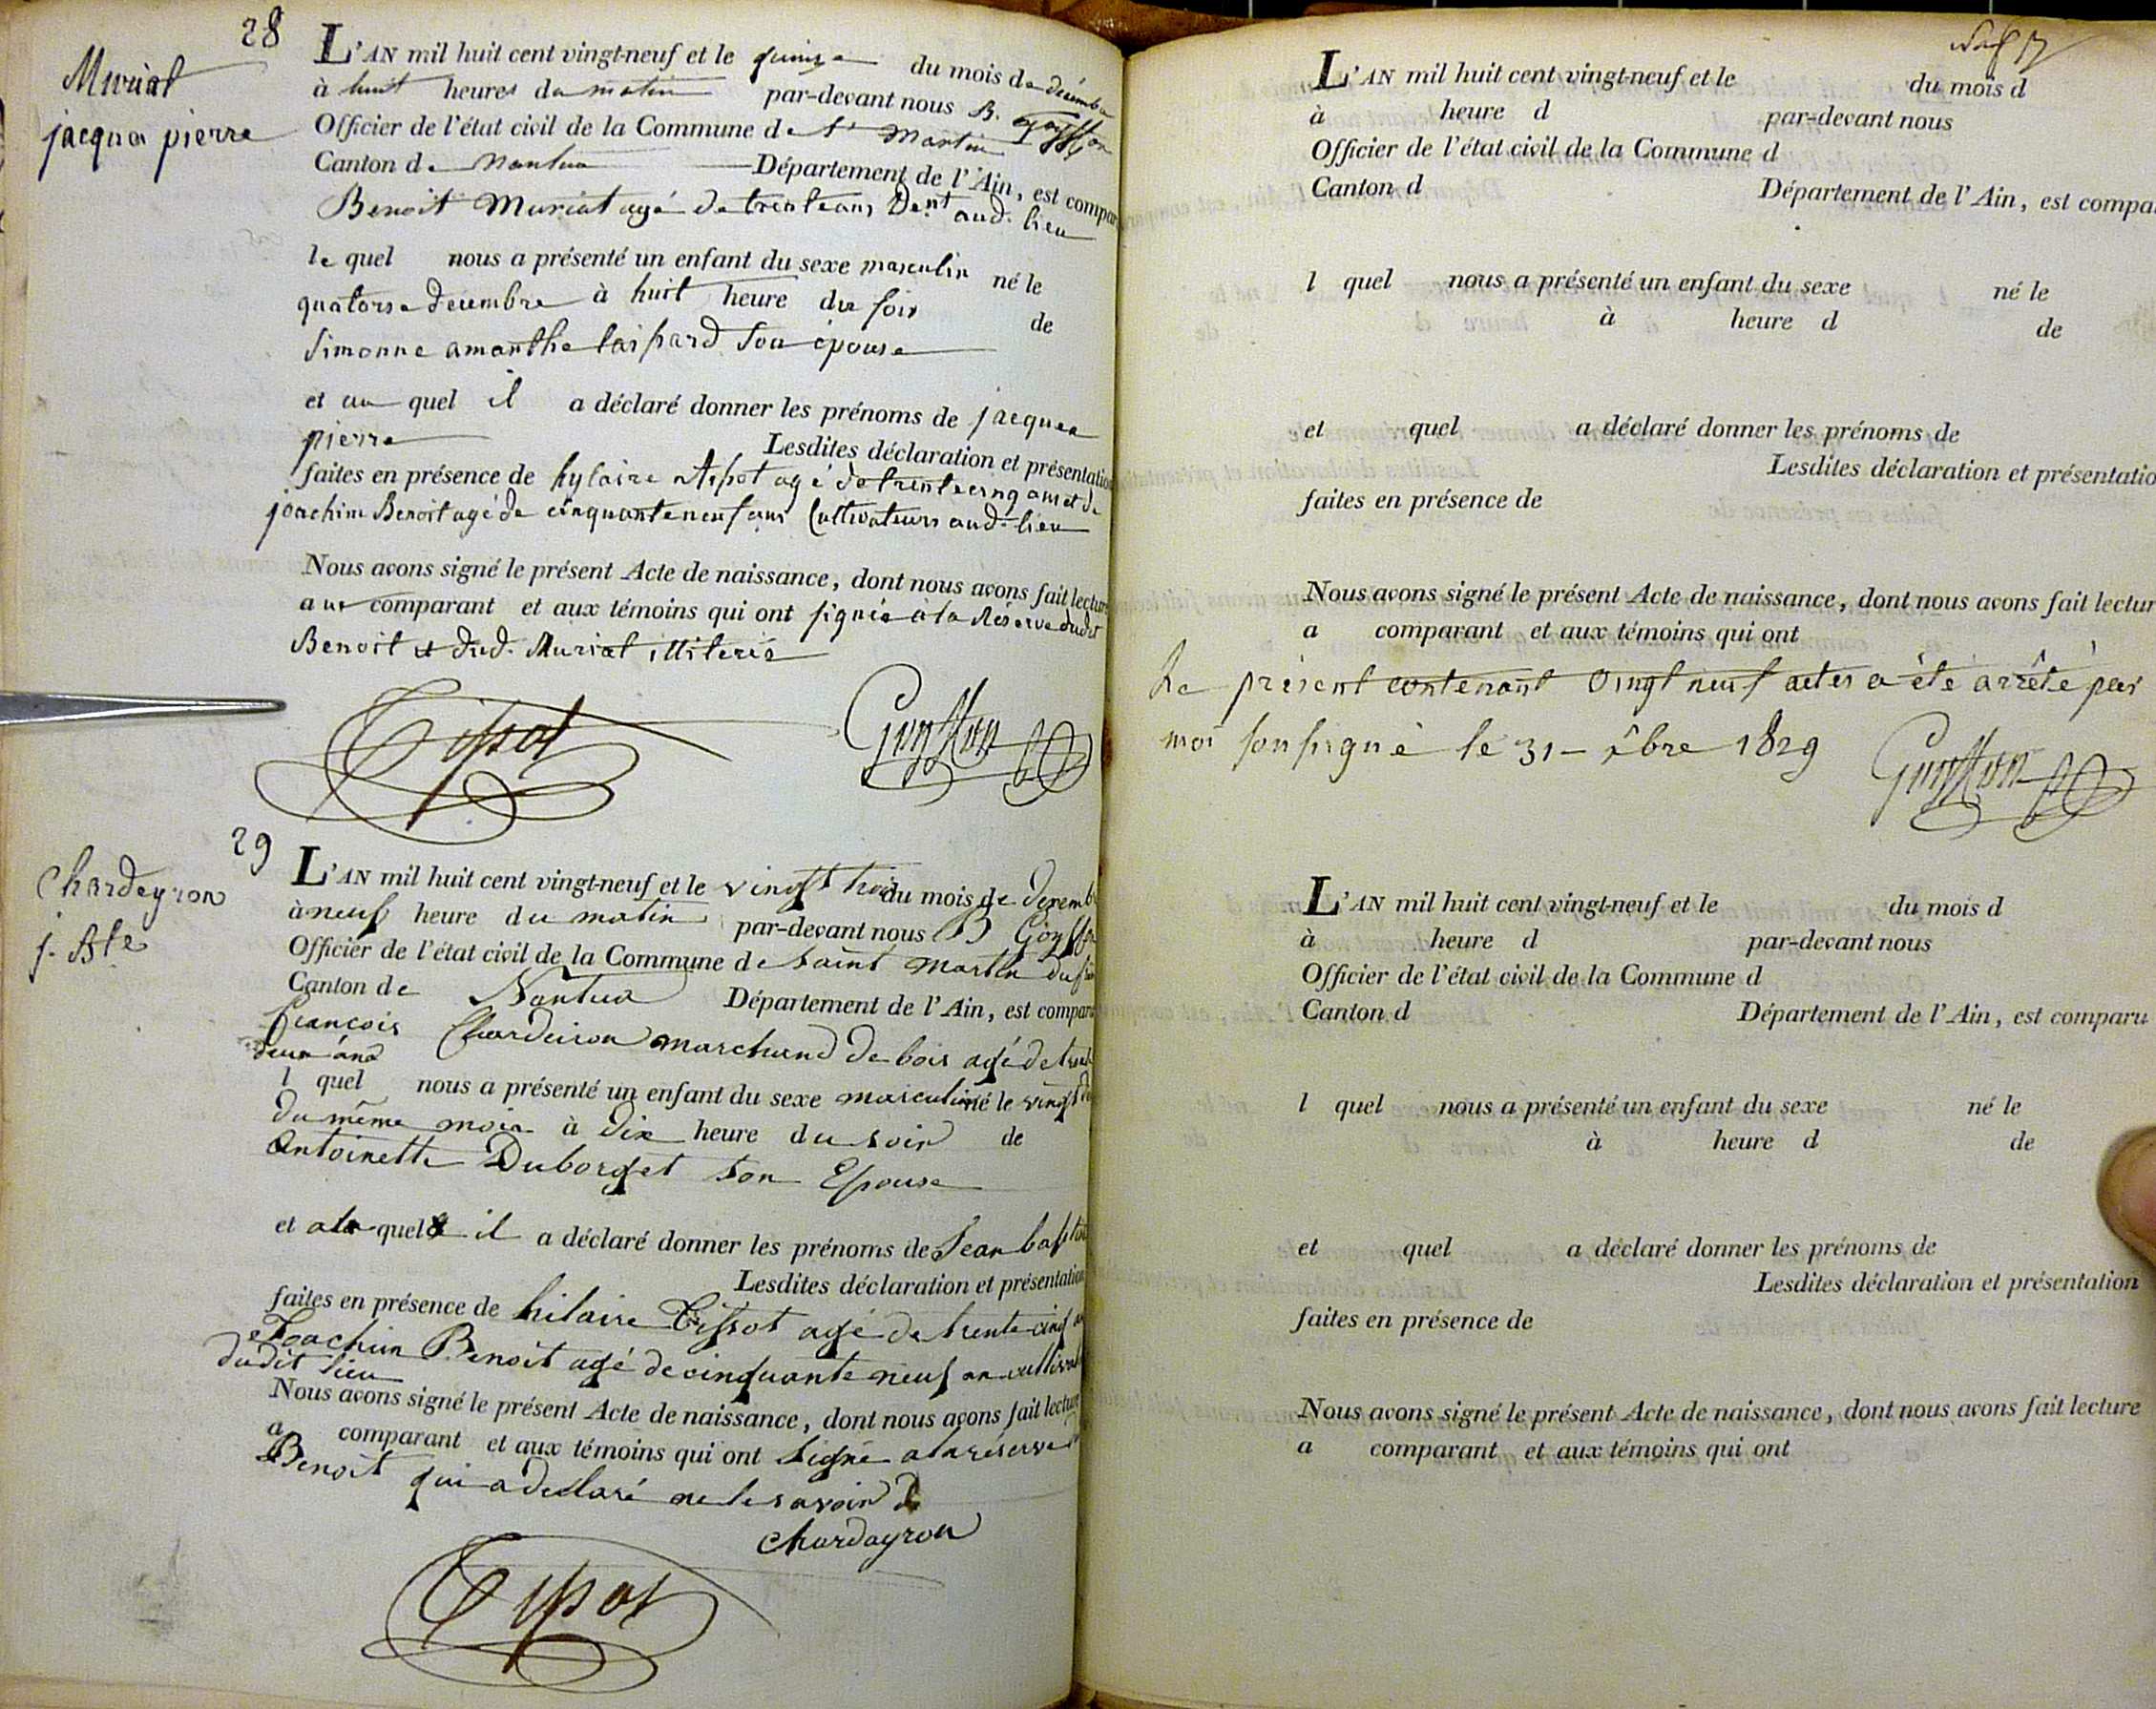 28
Muriat
jacques pierre
L'AN mil huit cent vingt-neuf et le quinze du mois de décembre
à huit heures du matin par-devant nous B. Goyffon
Officier de l'état civil de la Commune de St Martin
Canton de Nantua Département de l'Ain, est compar
Benoit Muriat agé de trente ans Dent aud. lieu
le quel nous a présenté un enfant du sexe masculin né le
quatorse decembre à huit heure du soir de
Simonne amanthe son épouse
et au quel il a déclaré donner les prénoms de jacques
pierre Lesdites déclaration et présentation
faites en présence de hylaire tissot agé de trente cinq ans et de
joachim Benoit agé de cinquante neuf ans Cultivateurs aud. lieu
Nous avons signé le présent Acte de naissance, dont nous avons fait lecture
au comparant et aux témoins qui ont signés à la Réserve dudt
Benoit et dud. Muriat illiterés
Tissot Goyffon
29
Chardeyron
j. Bte
L'AN mil huit cent vingt-neuf et le vingt trois du mois de decemb
à neuf heure du matin par-devant nous B Goyffon
Officier de l'état civil de la Commune de Saint Martin du
Canton de Nantua Département de l'Ain, est compar
francois Chardeiron marchand de bois agé de trente
deux ans
l quel nous a présenté un enfant du sexe masculin né le vingt
du même mois à dix heure du soir de
Antoinette Duborget son Epouse
et ala quel il a déclaré donner les prénoms de Jean baptiste
Lesdites déclaration et présentation
faites en présence de hilaire Tissot agé de trente cinq
Joachim Benoit agé de cinquante neuf an
dudit lieu
Nous avons signé le présent Acte de naissance, dont nous avons fait lecture
a comparant et aux témoins qui ont Signé ala réserve
Benoit qui a declaré ne le savoir
chardayron
Tissot
L'AN mil huit cent vingt-neuf et le du mois d
à heure d par-devant nous
Officier de l'état civil de la Commune d
Canton d Département de l'Ain, est compa
l quel nous a présenté un enfant du sexe né le
à heure d de
et quel a déclaré donner les prénoms de
Lesdites déclaration et présentatio
faites en présence de
Nous avons signé le présent Acte de naissance, dont nous avons fait lectur
a comparant et aux témoins qui ont
Le présent contenant vingt neuf actes a été arrêté par
moi soussigné le 31 - xbre 1829 Goyffon
L'AN mil huit cent vingt-neuf et le du mois d
à heure d par-devant nous
Officier de l'état civil de la Commune d
Canton d Département de l'Ain, est comparu
l quel nous a présenté un enfant du sexe né le
à heure d de
et quel a déclaré donner les prénoms de
Lesdites déclaration et présentation
faites en présence de
Nous avons signé le présent Acte de naissance, dont nous avons fait lecture
a comparant et aux témoins qui ont